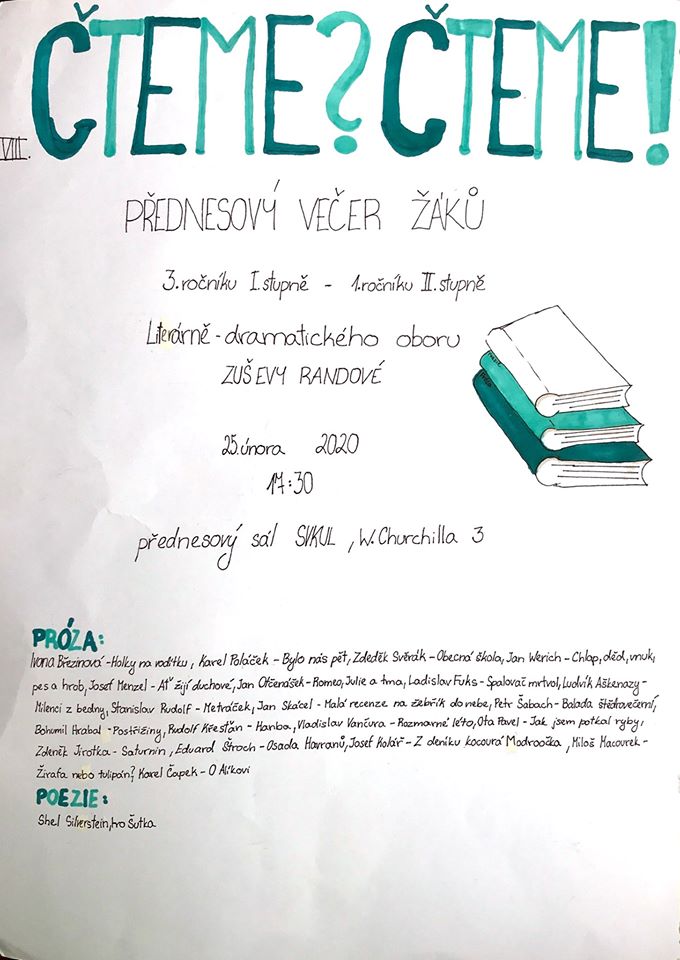 ČTEME? ČTEME!
VIII.
PŘEDNESOVÝ VEČER ŽÁKŮ
3. ročníku I. stupně - 1. ročníku II. stupně
Literárně - dramatického oboru
ZUŠ EVY RANDOVÉ
25. února 2020
17:30
přednesový sál SVKUL, W. Churchilla 3
PRÓZA:
Ivona Březinová - Holky na vodítku, Karel Poláček - Bylo nás pět, Zdeděk Svěrák - Obecná škola, Jan Werich - Chlap, děd, vnuk,
pes a hrob, Josef Menzel - Ať žijí duchové, Jan Otčenášek - Romeo, Julie a tma, Ladislav Fuks - Spalovač mrtvol, Ludvík Aškenazy -
Milenci z bedny, Stanislav Rudolf - Metráček, Jan Skácel - Malá recenze na žebřík do nebe, Petr Šabach - Balada štědrovečerní,
Bohumil Hrabal - Postřižiny, Rudolf Křesťan - Hanba, Vladislav Vančura - Rozmarné léto, Ota Pavel - Jak jsem potkal ryby,
Zdeněk Jirotka - Saturnin, Eduard Štroch - Osada Havranů, Josef Kolář - Z deníku kocoura Modroočka, Miloš Macourek -
Žirafa nebo tulipán? Karel Čapek - O Alíkovi
POEZIE:
Shel Silverstein, Ivo Šutka